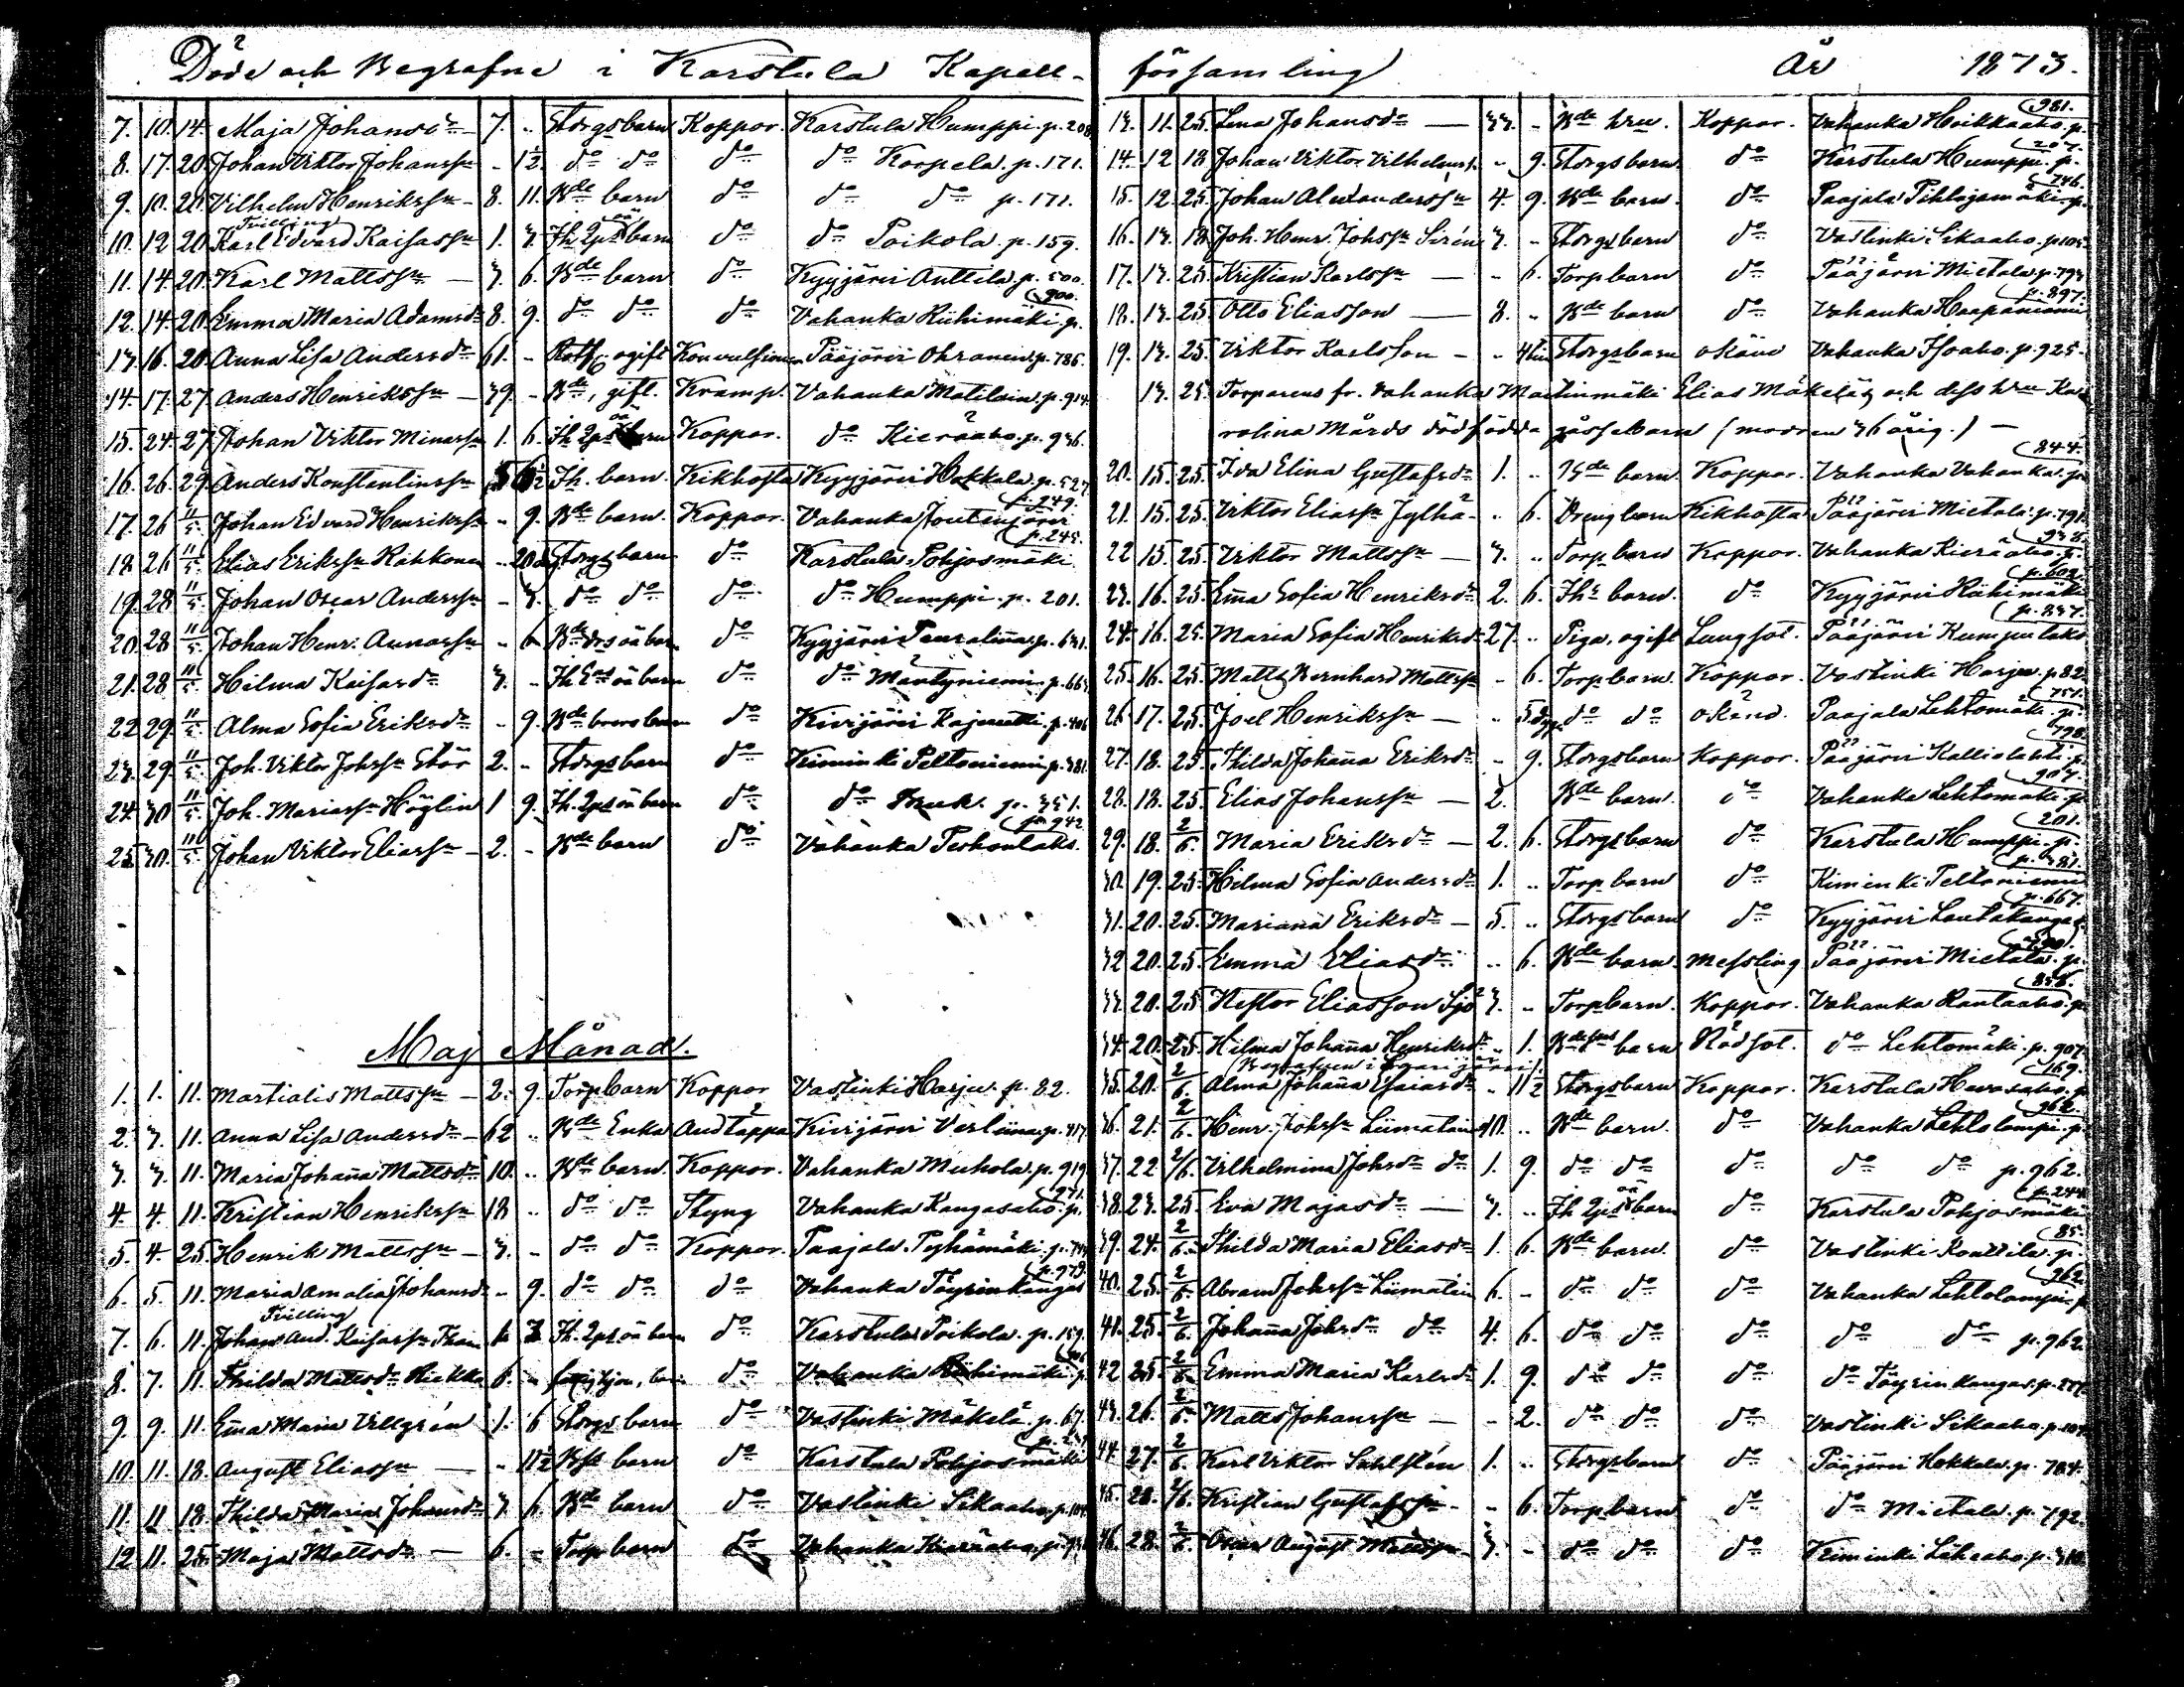 Döde och Begrafne i Karstula Kapell-
7. 10. 14. Maja Johansdr 7. .. Storgsbarn Koppor. Karstula Humppi. p. 208
8. 17. 20. Johan Viktor Johanssn - 1½. do do do do Korpela. p. 171.
9. 10. 20. Vilhelm Henrikssn - 8. 11. Bde barn do do do p. 171.
Tvilling
10. 12 20. Karl Edvard Kaisassn 1. 3. Th. 2ps oä barn do do Poikola. p. 159.
11. 14. 20. Karl Mattssn — 3. 6. Bde barn do Kyyjärvi Anttila. p. 500.
900.
12. 14. 20. Emma Maria Adamsdr 8. 9. do do do Vahanka Riihimäki. p.
13 16. 20. Anna Lisa Andersdr 61. - Roth. ogift Konvulsioner Pääjärvi Ohranen. p. 786.
14. 17. 27 Anders Henrikssn — 39. - Bde, gift. Kramp. Vahanka Matilain. p. 914.
15. 24. 27. Johan Viktor Minassn 1. 6. Th. 2ps oä barn Koppor. do Kieräaho. p. 936.
16. 26. 29. Anders Konstantinssn Th. barn. Kikhosta Kyyjärvi Hokkala. p. 527
p. 249.
17. 26 11/5. Johan Edvard Henrikssn - 9. Bde barn. Koppor. Vahanka Joutenjärvi
p. 245.
18. 26 11/5. Elias Erikssn Kahkonen .. 20 d Storgs barn do Karstula Pohjosmäki
19. 28 11/5. Johan Oscar Anderssn - 3. do do do do Humppi. p. 201.
20. 28 11/5. Johan Henr. Annassn - 6 Bde drs oä barn do Kyyjärvi p. 631.
21. 28 11/5. Hilma Kaisasdr 3. - Th. oä barn do do Mäntyniemi p. 663
22 29. 11/5. Alma Sofia Eriksdr - 9. Bde barn do Kivijärvi p. 406
23. 29. 11/5. Joh. Viktor Johssn Stör 2. - Storgsbarn do Kiminki Peltoniemi p. 381.
24. 30 11/5. Joh. Mariassn Höglin 1 9. Th. 2ps oä barn do do p. 351.
p. 942
25. 30. 11/5. Johan Viktor Eliassn - 2. - Bde barn do Vahanka Peskonlaks.
Maj Månad.
1. 1. 11. Martialis Mattssn — 2. 9. Torpbarn Koppor Vastinki Harju. p. 82.
2. 3. 11. Anna Lisa Andersdr - 62 .. Bde Enka Andtäppa Kivijärvi p. 417
3. 3. 11. Maria Johanna Mattsdr 10. .. Bde barn. Koppor. Vahanka Mukola. p. 919
271.
4. 4. 11. Kristian Henrikssn 18 .. do do Styng Vahanka Kangasaho. p.
5. 4. 25. Henrik Mattssn — 3. - do do Koppor. Paajala p.
p. 979.
6. 5. 11. Maria Amalia Johansdr - 9. do do do Vahanka Töyrinkangas
Tvilling
7. 6. 11. Johan And. Kaisassn Th. 2ps oä barn do Karstula Poikola. p. 159.
8. 7. 11. Thilda Mattsdr Riekko 6. - do Vahanka Riihimäki. p.
9. 9. 11. Ema Maria Villgrén 1. 6 Storgs barn do Vastinki Mäkelä. p. 67.
10. 11. 18. August Eliassn — - 11½ barn do Karstula Pohjosmäki
11. 11 18. Thilda Maria Johansdr 3. 6. Bde barn do Vastinki Sikaaho. p. 104.
12 11. 25. Maja Mattsdr — 6. - Torp barn do Vahanka Kieräaho. p.
församling År 1873.
981.
13. 11. 25. Lena Johansdr — 33. - Bde hru. Koppor. Vahanka Hoikkaaho. p.
207.
14. 12 18 Johan Viktor Vilhelmss. - 9. Storgs barn do Karstula Humppi. p.
746.
15. 12. 25. Johan Alexanderssn 4. 9. Bde barn. do Paajala Pihlajamäki. p.
16. 13. 18. Joh. Henr. Johssn Sirén 3. - Storgs barn do Vastinki Sikaaho. p.
17. 13. 25. Kristian Karlssn — - 6. Torp barn do Pääjärvi Mietala. p. 793
p. 897.
18. 13. 25. Otto Eliasson — 8. - Bde barn do Vahanka Haapaniemi
19. 13. 25. Viktor Karlsson - - Storgsbarn okänd Vahanka Isoaho. p. 925.
13. 25. Torparens fr. Vahanka Martinmäki Elias Mäkeläs och dess hru Ka-
rolina Mårds dödfödda gossebarn (modren 36 årig.) —
244.
20. 15. 25. Ida Elina Gustafsdr 1. .. Bde barn. Koppor. Vahanka Vahanka. p.
21. 15. 25. Viktor Eliassn Jylhä - .. 6. Dreng barn Kikhosta Pääjärvi Mietala. p. 791.
938.
22 15 25. Viktor Mattssn — 3. .. Torp barn Koppor. Vahanka Kieräaho. p.
p. 602.
23. 16. 25. Emma Sofia Henriksdr 2. 6. Thr barn. do Kyyjärvi Riihimäki
p. 837.
24. 16. 25. Maria Sofia Henriksdr 27. .. Piga, ogift Lungsot. Pääjärvi Kumpulaks
25. 16. 25. Matts Bernhard Mattssn - 6. Torp barn. Koppor. Vastinki Harju. p 82.
751.
26 17. 25. Joel Henrikssn — .. do do okänd. Paajala Lehtomäki. p.
798.
27. 18. 25. Thilda Johanna Eriksdr - 9. Storgsbarn Koppor. Pääjärvi Kalliolahti. p.
907.
28. 18. 25. Elias Johanssn — 2. Bde barn. do Vahanka Lehtomäki. p
201.
29. 18. 2/6. Maria Eriksdr — 2. 6. Storgsbarn do Karstula Humppi. p.
p. 381.
30. 19. 25. Hilma Sofia Andersdr 1. .. Torp barn do Kiminki Peltoniemi
p. 667.
31. 20. 25. Marianna Eriksdr — 5. .. Storgsbarn do Kyyjärvi Lautakangas
32 20. 25. Emma Eliasdr .. 6. Bde barn. Messling Pääjärvi Mietala. p.
858.
33 20. 25 Nestor Eliasson Sjö 3. .. Torpbarn. Koppor. Vahanka Rantaaho. p
34. 20. 25. Hilma Johanna Henriksdr .. 1. barn Rödsot. do Lehtomäki. p. 907.
169.
35. 20. 2/6. Alma Johanna Esaiasdr - 11½ Storgsbarn Koppor. Karstula Havasaho. p
962.
36. 21. 2/6. Henr. Johssn Liimatain 10. .. Bde barn. do Vahanka Lehtolampi. p.
37. 22 2/6. Vilhelmina Johsdr do 1. 9. do do do do do p. 962.
p. 244
38. 23. 25. Eva Majasdr — 3. .. Th 2ps oä barn do Karstula Pohjosmäki
85.
39. 24. 2/6. Thilda Maria Eliasdr 1. 6. Bde barn. do Vastinki Ronttila. p.
962.
40. 25. 2/6. Abram Johssn Liimatain 6. - do do do Vahanka Lehtolampi. p
41. 25. 2/6. Johanna Johsdr do 4. 6. do do do do do p. 962.
42 25. 2/6. Emma Maria Karlsdr 1. 9. do do do do Töyrinkangas. p.
43. 26. 2/6. Matts Johanssn — - 2. do do do Vastinki Sikaaho. p. 104
44. 27. 2/6. Karl Viktor Sahlstén 1. .. Storgsbarn do Pääjärvi Hokkala. p. 784.
45. 28. 2/6. Kristian Gustafssn - - 6. Torp barn do do Mietala. p. 792.
46. 28. 2/6. Oscar August Mattssn 3. - do do do Kiminki Läheaho. p.